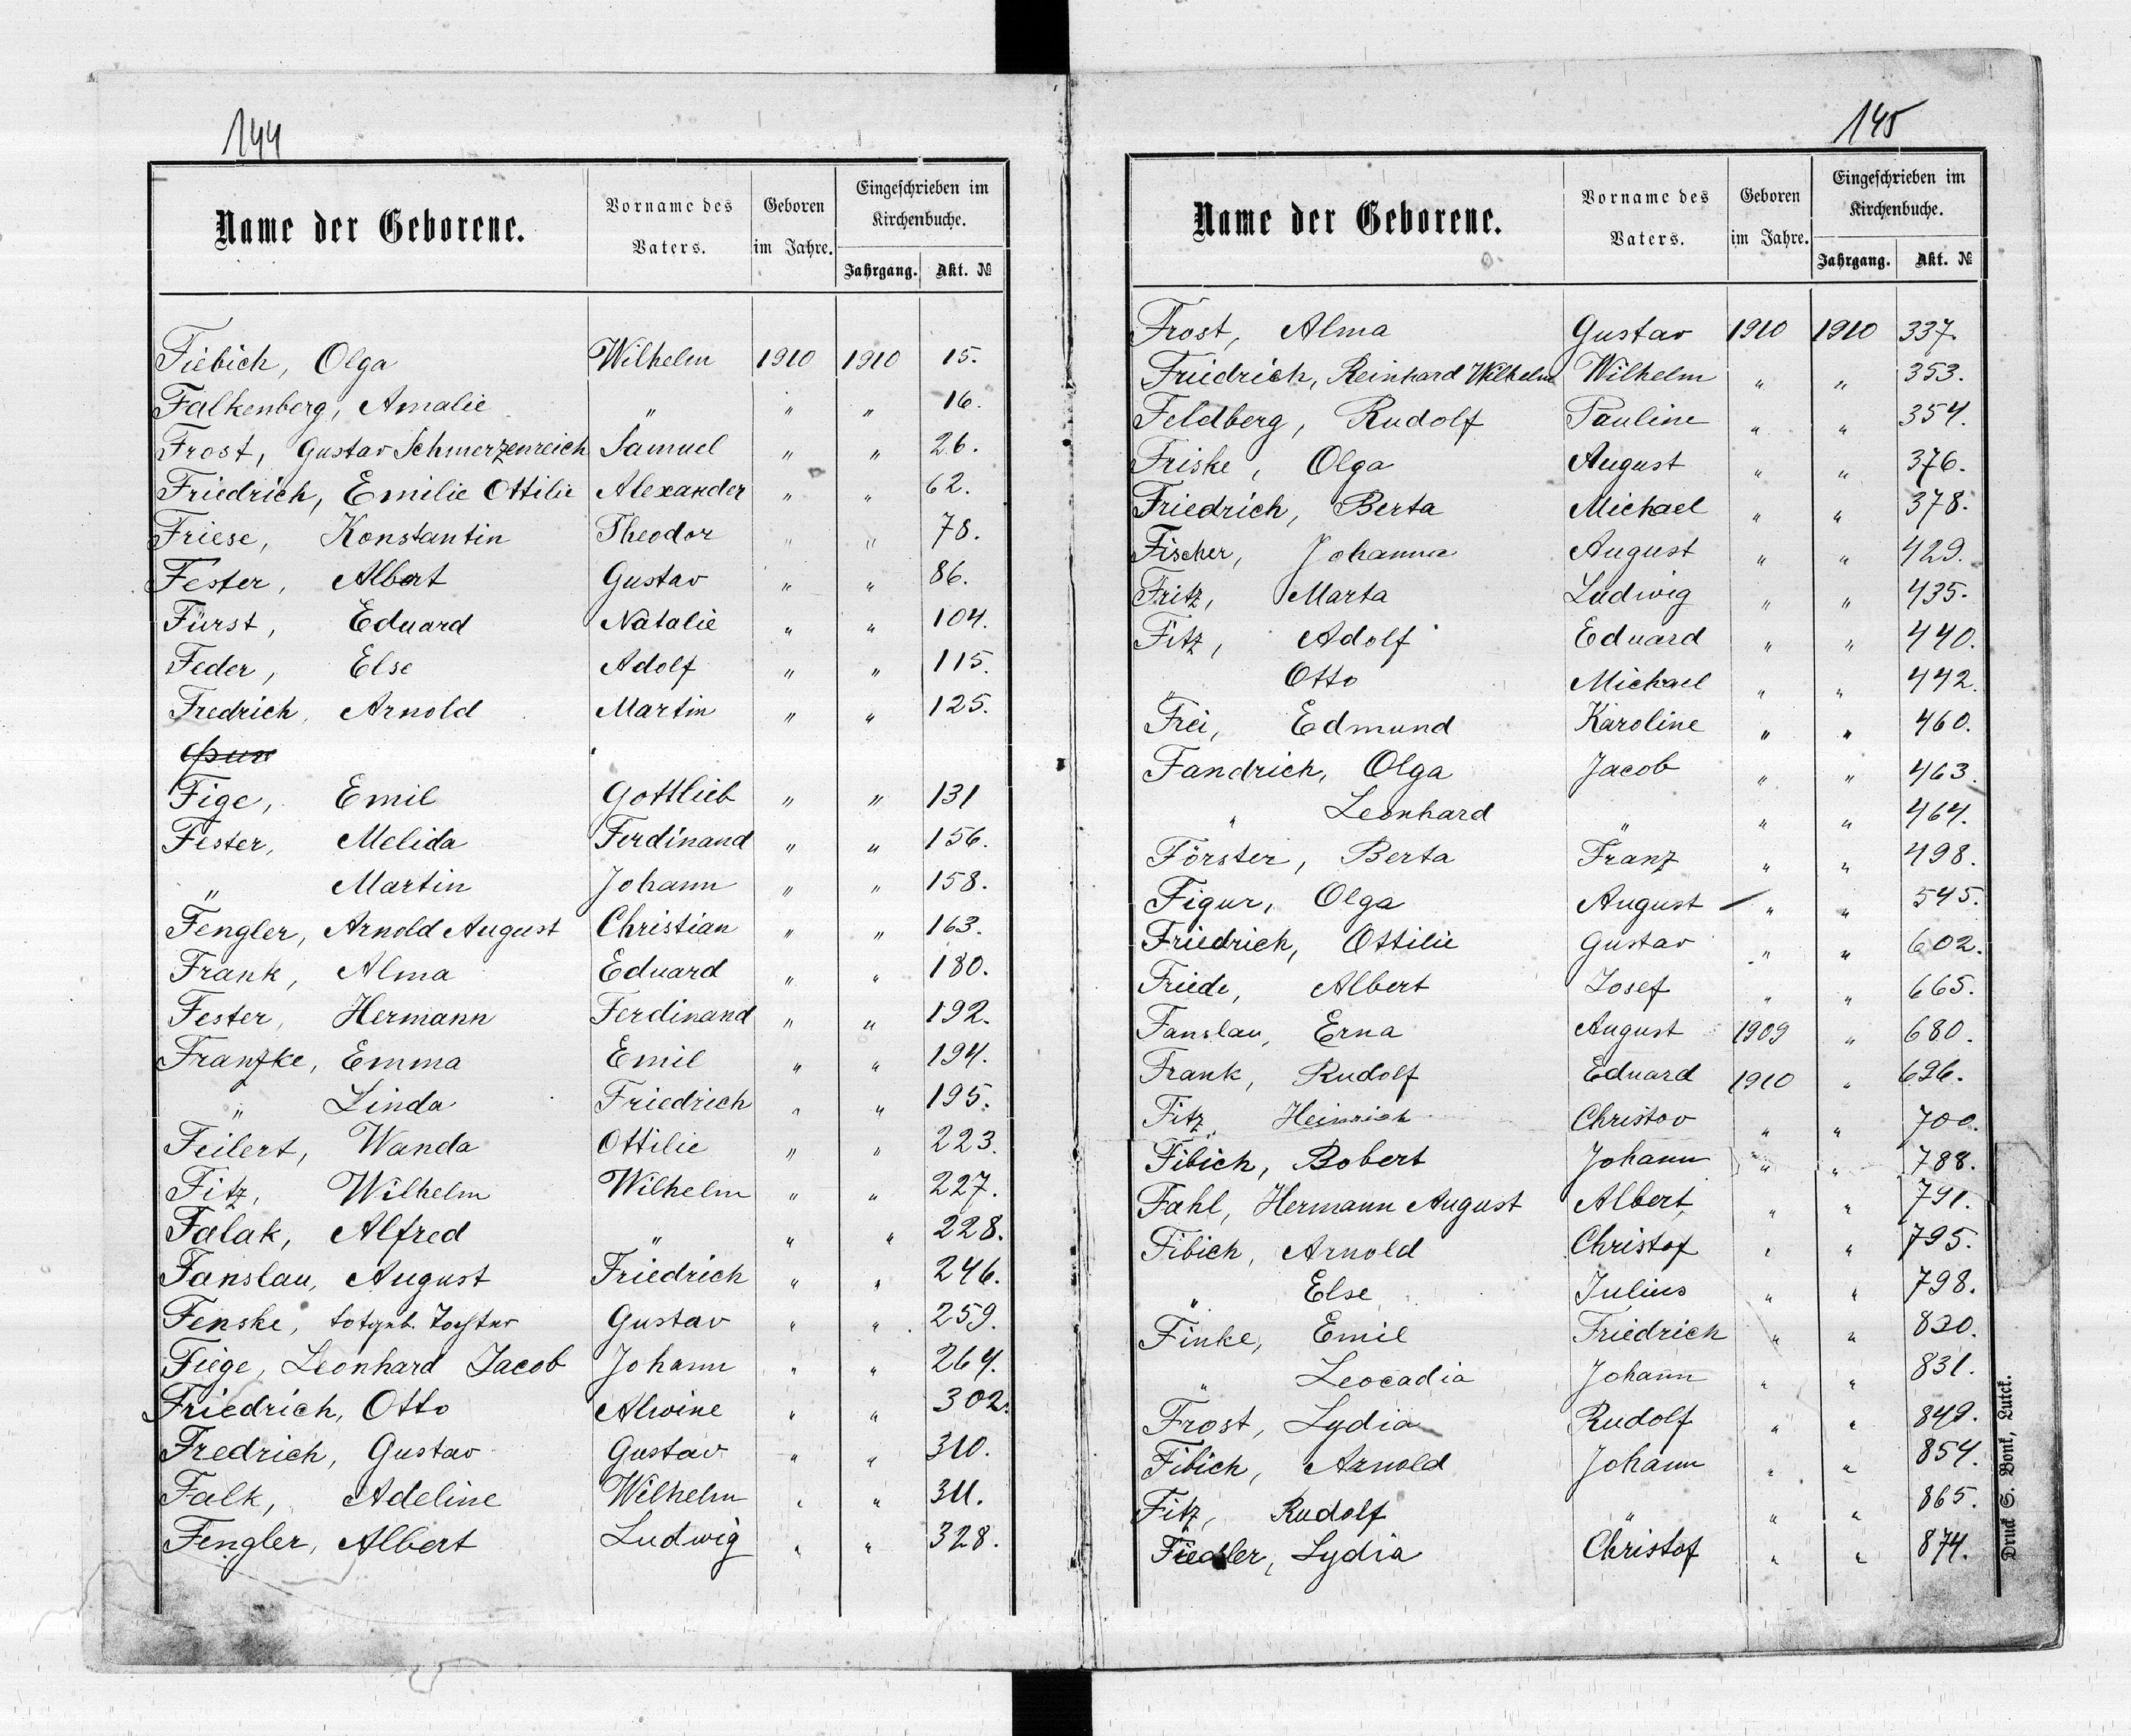 144
Name der Geborene. Vorname des Vaters. Geboren im Jahre. Eingeschrieben im Kirchenbuche. Jahrgang. Akt. №
Fiebich, Olga Wilhelm 1910 1910 15.
Falkenberg, Amalie " " " 16.
Frost, Gustav Schmerzenreich Samuel " " 26.
Friedrich, Emilie Ottilie Alexander " " 62.
Friese, Konstantin Theodor " " 78.
Fester, Albert Gustav " " 86.
Fürst, Eduard Natalie " " 104.
Feder, Else Adolf " " 115.
Fredrich, Arnold Martin " " 125.
Fige, Emil Gottlieb " " 131
Fester, Melida Ferdinand " " 156.
" Martin Johann " " 158.
Fengler, Arnold August Christian " " 163.
Frank, Alma Eduard " " 180.
Fester, Hermann Ferdinand " " 192.
Franzke, Emma Emil " " 194.
" Linda Friedrich " " 195.
Feilert, Wanda Ottilie " " 223.
Fitz, Wilhelm Wilhelm " " 227.
Falak, Alfred " " " 228.
Fanslau, August Friedrich " " 246.
Fenske, totgeb. Tochter Gustav " " 259.
Fiege, Leonhard Jacob Johann " " 264.
Friedrich, Otto Alwine " " 302.
Fredrich, Gustav Gustav " " 310.
Falk, Adeline Wilhelm " " 311.
Fengler, Albert Ludwig " " 328.
145
Name der Geborene. Vorname des Vaters. Geboren im Jahre. Eingeschrieben im Kirchenbuche. Jahrgang. Akt. №
Frost, Alma Gustav 1910 1910 337.
Friedrich, Reinhard Wilhelm Wilhelm " " 353.
Feldberg, Rudolf Pauline " " 354.
Friske, Olga August " " 376.
Friedrich, Berta Michael " " 378.
Fischer, Johanna August " " 429.
Fritz, Marta Ludwig " " 435.
Fitz, Adolf Eduard " " 440.
" Otto Michael " " 442.
Frei, Edmund Karoline " " 460.
Fandrich, Olga Jacob " " 463.
" Leonhard " " " 464.
Förster, Berta Franz " " 498.
Figur, Olga August " " 545.
Friedrich, Ottilie Gustav " " 602.
Friede, Albert Josef " " 665.
Fanslau, Erna August 1909 " 680.
Frank, Rudolf Eduard 1910 " 696.
Fitz, Heinrich Christov " " 700.
Fibich, Robert Johann " " 788.
Fahl, Hermann August Albert " " 791.
Fibich, Arnold Christof " " 795.
" Else Julius " " 798.
Finke, Emil Friedrich " " 830.
" Leocadia Johann " " 831.
Frost, Lydia Rudolf " " 849.
Fibich, Arnold Johann " " 854.
Fitz, Rudolf " " " 865.
Fiedler, Lydia Christof " " 874.
Druck S. Bonk, Lutck.